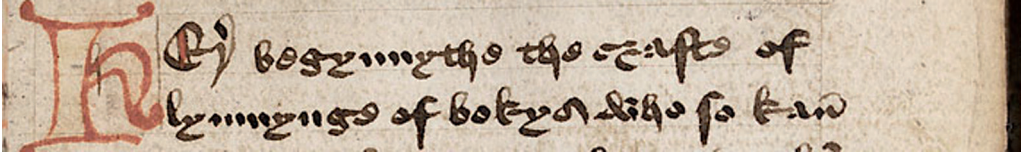 HEr begynnythe the crafte of
lymnynge of bokys who so kan